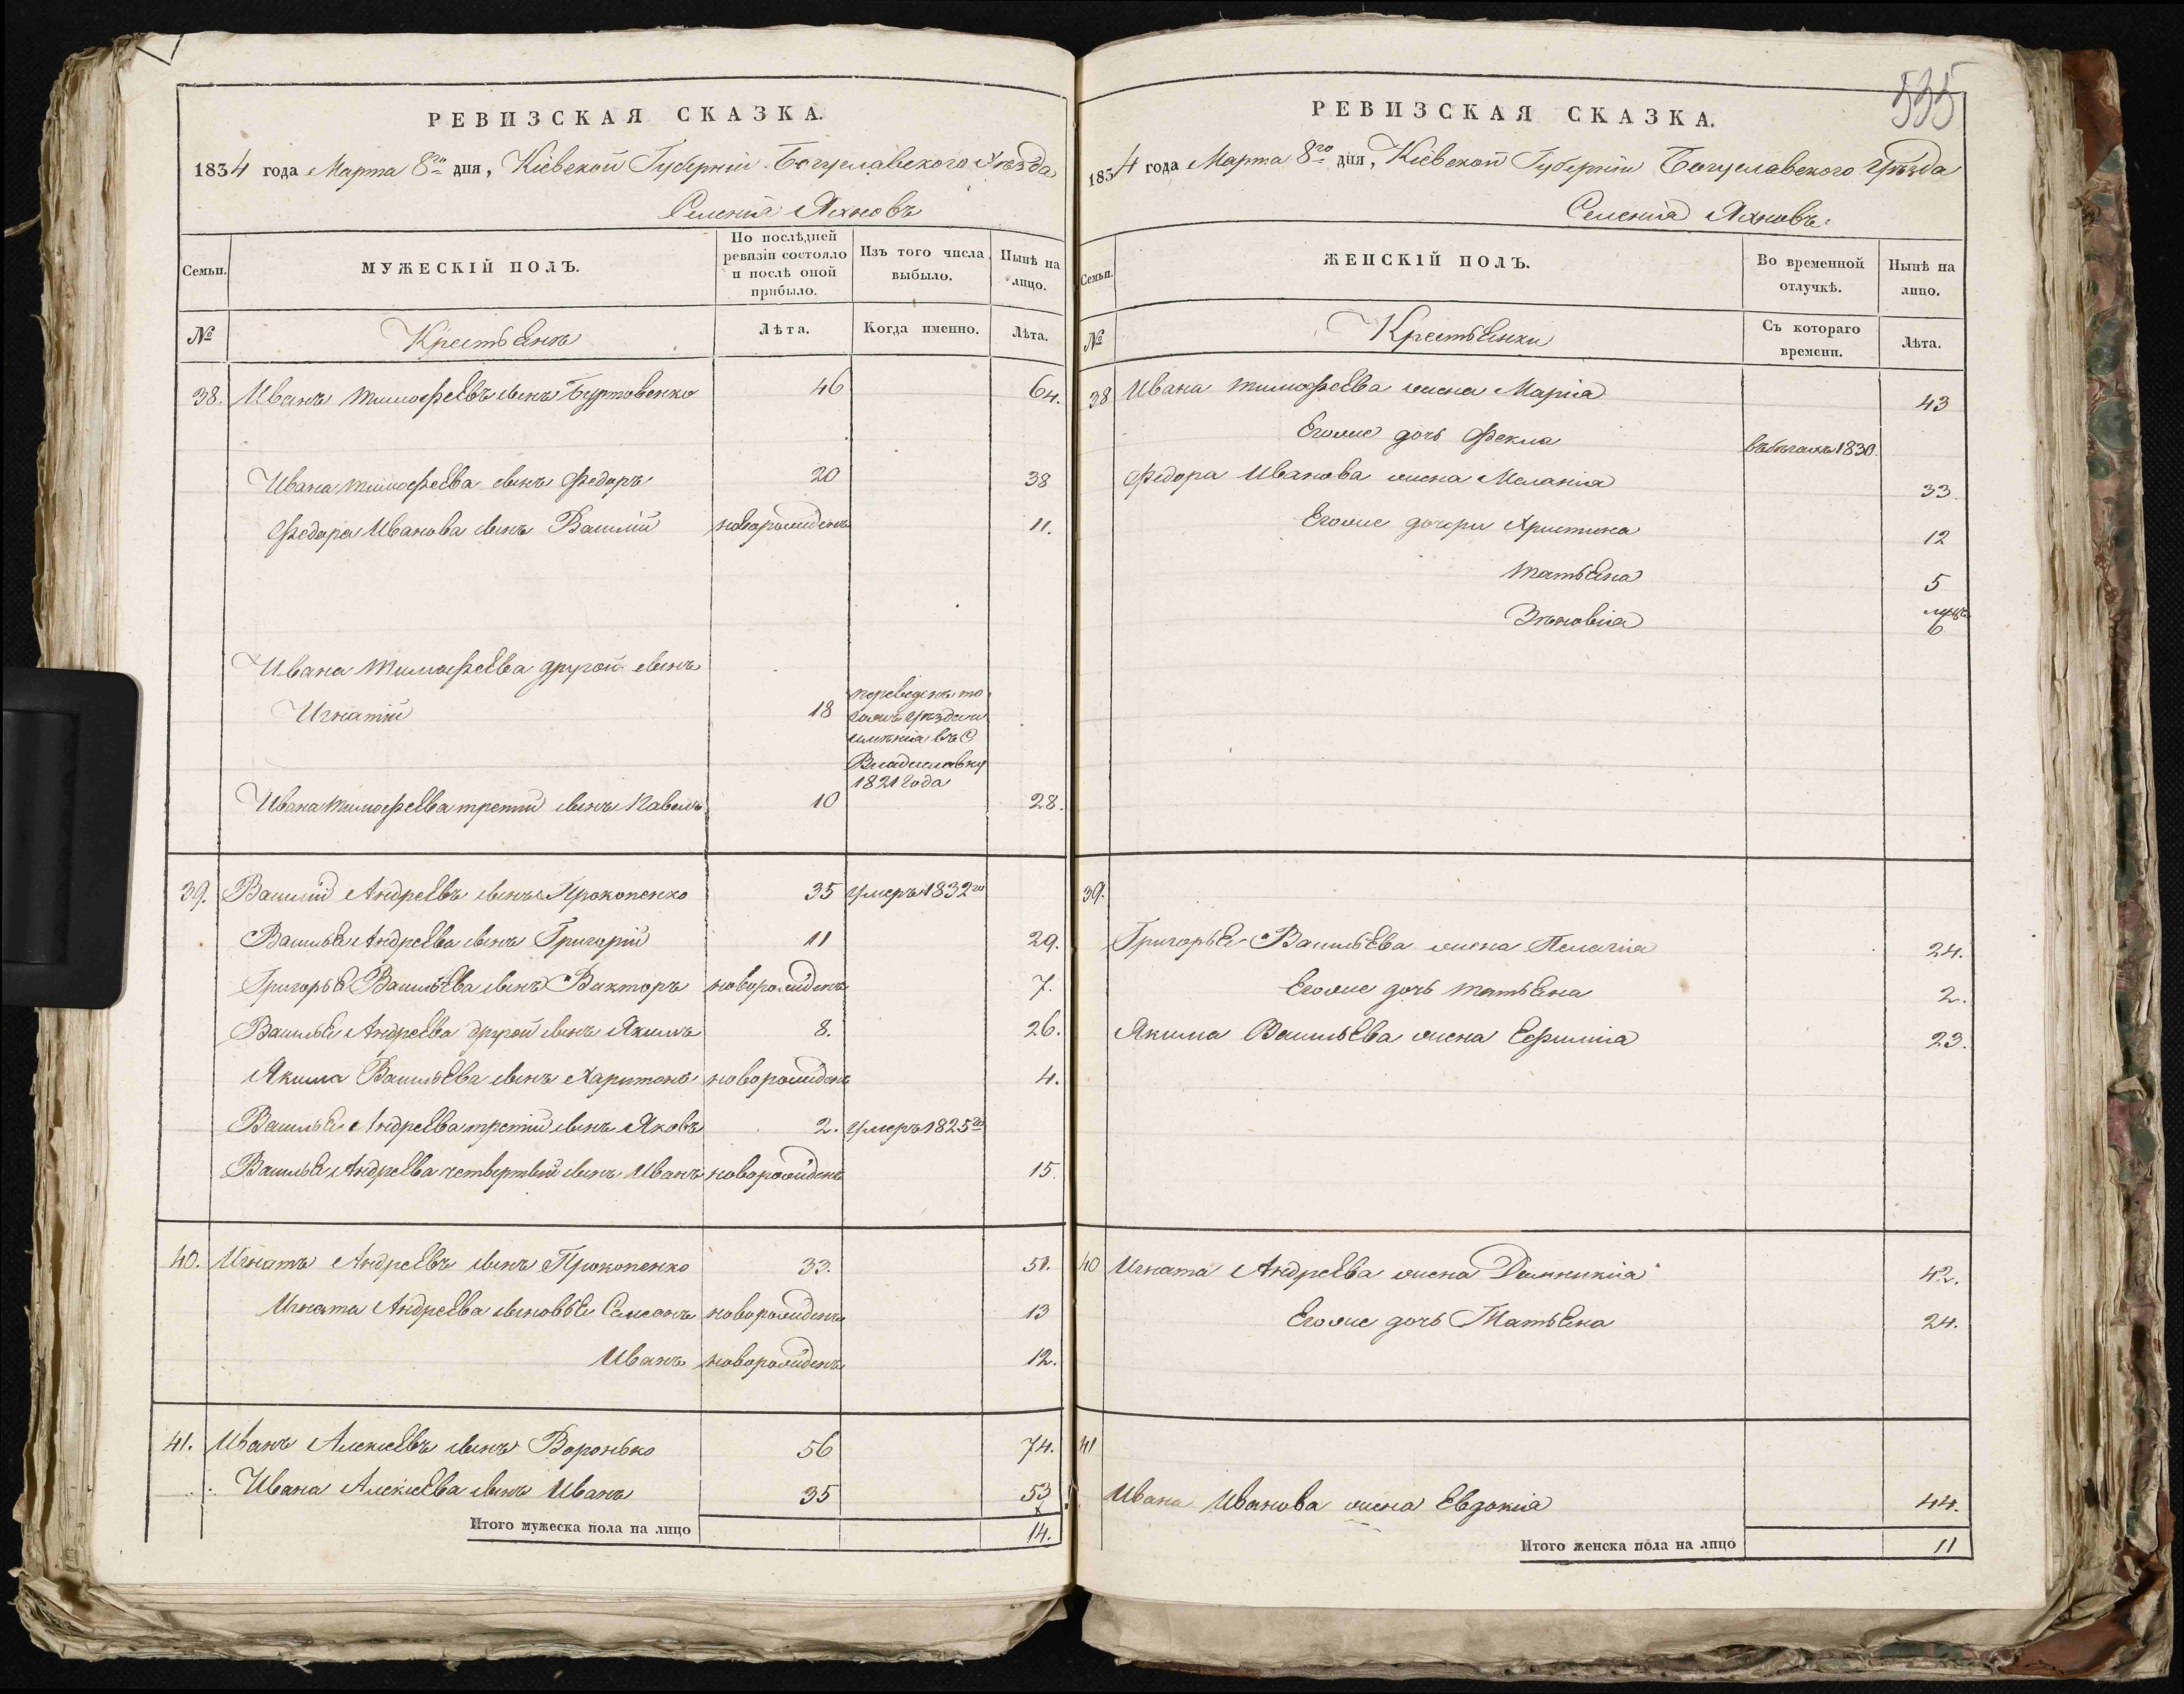 535
РЕВИЗСКАЯ СКАЗКА.
1834 года Марта 8го дня, Кіевской Губерніи Богуславского Уѣзда
Селенія Яхновъ
Семьи. МУЖЕСКІЙ ПОЛЪ. По послѣдней ревизіи состояло и послѣ оной прибыло. Изъ того числа выбыло. Нынѣ на лицо.
№ Крестьяне Лѣта. Когда именно. Лѣта.
38. Иванъ Тимофеевъ сынъ Буртовенко 46 64.
Ивана Тимофеева сынъ Федоръ 20 38
Федора Иванова сынъ Василій новорожденъ 11.
Ивана Тимофеева другой сынъ
Игнатій 18 переведенъ то
гожъ уѣзда и
имѣнія въ С
Владиславку
1821 года
Ивана Тимофеева третій сынъ Павелъ 10 28.
39. Василій Андреевъ сынъ Прокопенко 35 умеръ 1832го
Василья Андреева сынъ Григорій 11 29.
Григорья Васильева сынъ Викторъ новорожденъ 7.
Василья Андреева другой сынъ Якимъ 8. 26.
Якима Васильева сынъ Харитонъ новорожденъ 4.
Василья Андреева третій сынъ Яковъ 2. умеръ 1825го
Василья Андреева четвертый сынъ Иванъ новорожденъ 15.
40. Игнатъ Андреевъ сынъ Прокопенко 33. 51.
Игната Андреева сыновья Самсонъ новорожденъ 13
Иванъ новорожденъ 12.
41. Иванъ Алексеевъ сынъ Воронько 56 74.
Ивана Алексеева сынъ Иванъ 35 53
Итого мужеска пола на лицо 14.
РЕВИЗСКАЯ СКАЗКА.
1834 года Марта 8го дня, Кіевской Губерніи Богуславского Уѣзда
Селенія Яхновъ.
Семьи. ЖЕНСКІЙ ПОЛЪ. Во временной отлучкѣ. Нынѣ на лицо.
№ Крестьянки Съ котораго времени. Лѣта.
38 Ивана Тимофеева жена Марія 43
Егоже дочь Фекла въ бѣгахъ 1830.
Федора Иванова жена Меланія 33
Егоже дочери Христина 12
Татьяна 5
Зѣновія 6
39.
Григорья Васильева жена Пелагія 24.
Егоже дочь Татьяна 2.
Якима Васильева жена Ефимія 23.
40 Игната Андреева жена Домникія 42.
Егоже дочь Татьяна 24.
41
Ивана Иванова жена Евдокія 44.
Итого женска пола на лицо 11